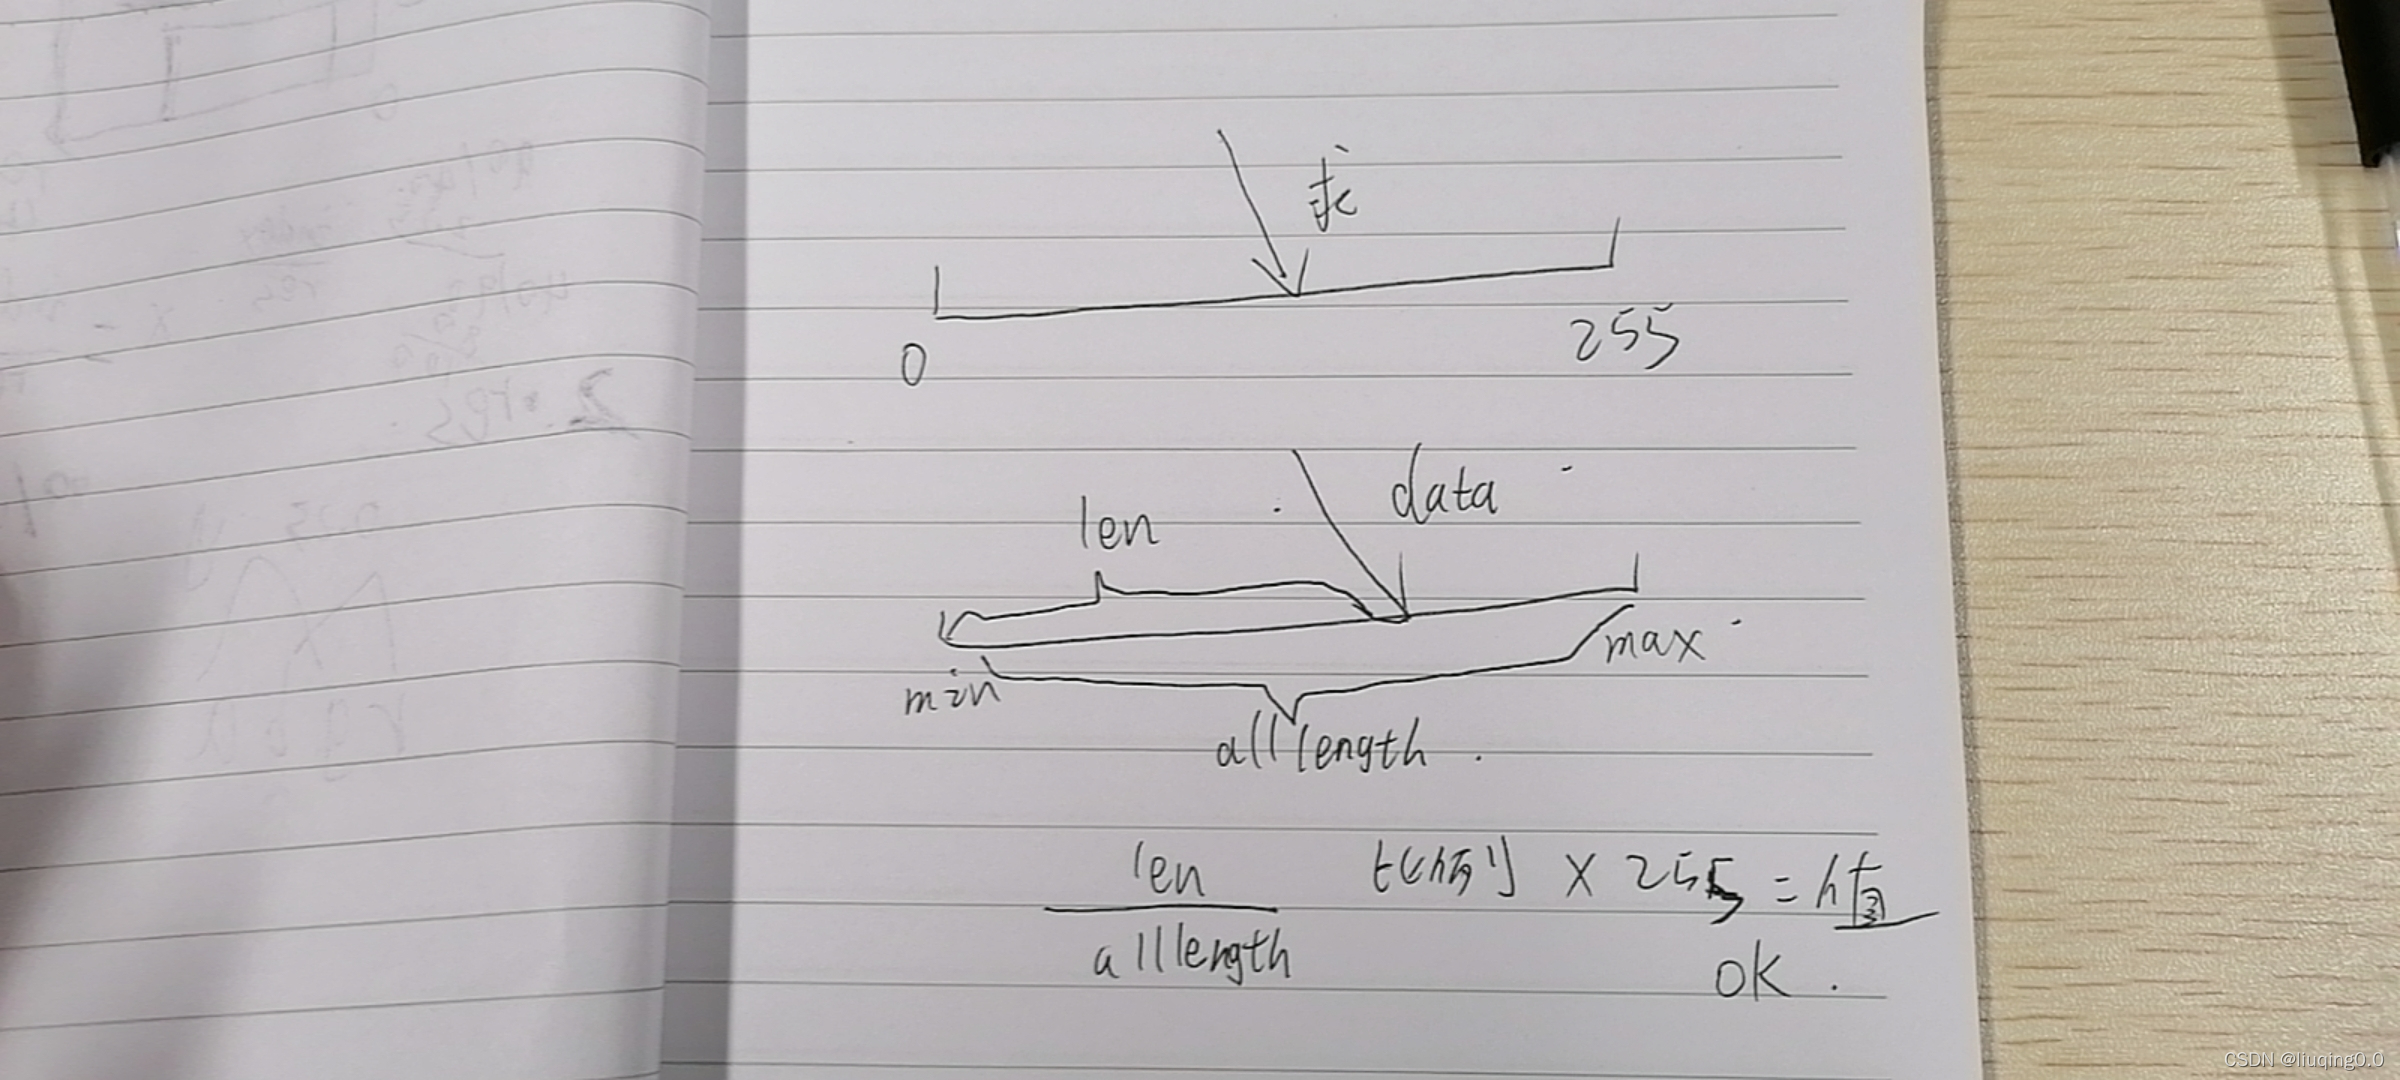 求
0 255
len data
min max
all length.
len 比例 × 255 = 值
alllength OK.
CSDN @liuqing0.0